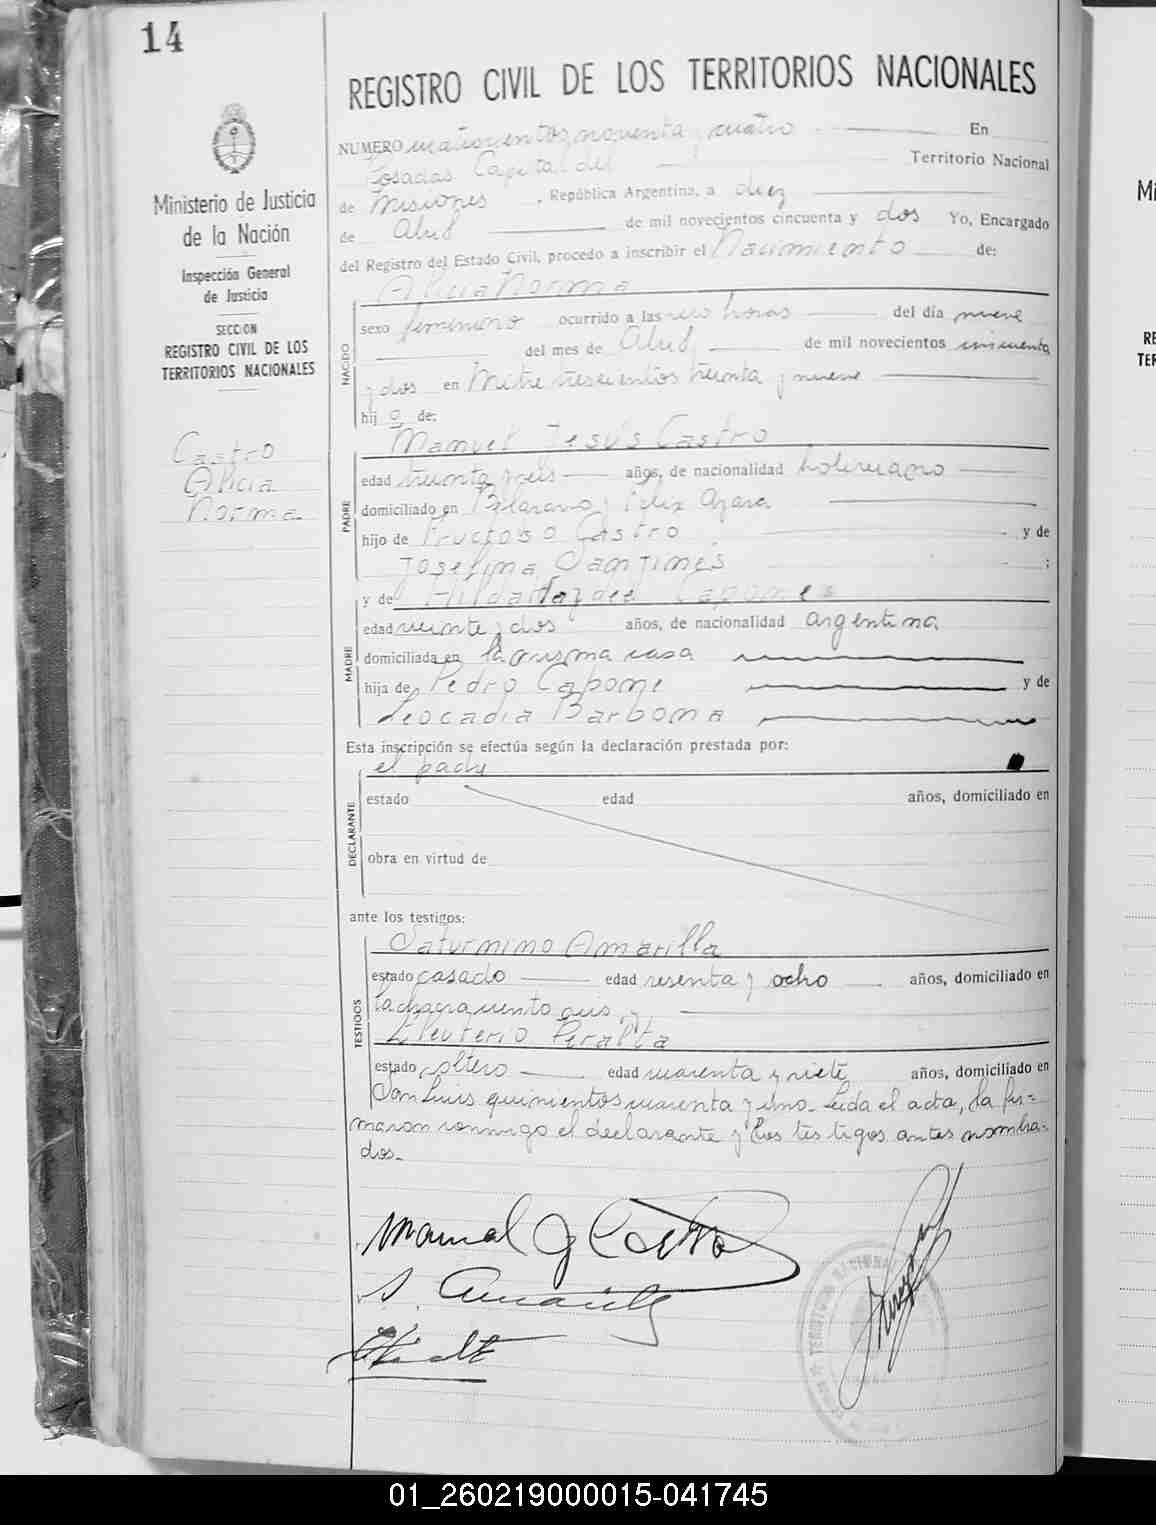 14
REGISTRO CIVIL DE LOS TERRITORIOS NACIONALES
Ministerio de Justicia
de la Nación
Inspección General
de Justicia
SECCION
REGISTRO CIVIL DE LOS
TERRITORIOS NACIONALES
Castro
Alicia
Norma
NUMERO cuatrocientos noventa y cuatro En
Posadas Capital del Territorio Nacional
de Misiones, República Argentina, a diez
de Abril de mil novecientos cincuenta y dos Yo, Encargado
del Registro del Estado Civil, procedo a inscribir el Nacimiento de:
NACIDO
Alicia Norma
sexo femenino ocurrido a las horas del día nueve
del mes de Abril de mil novecientos cincuenta
y dos en Mitre trescientos treinta y nueve
hij a de:
PADRE
Manuel Jesús Castro
edad treinta y seis años, de nacionalidad boliviano
domiciliado en Belgrano y Félix Azara
hijo de Fructoso Castro y de
Josefina Sanjinés ;
MADRE
y de Hilda Capone
edad veinte y dos años, de nacionalidad argentina
domiciliada en la misma casa
hija de Pedro Capone y de
Leocadia Barbona
Esta inscripción se efectúa según la declaración prestada por:
DECLARANTE
el padre
estado edad años, domiciliado en
obra en virtud de
ante los testigos:
TESTIGOS
Saturnino Amarilla
estado casado edad sesenta y ocho años, domiciliado en
la chacra ciento seis, y
Eleuterio Peralta
estado soltero edad cuarenta y siete años, domiciliado en
San Luis quinientos cuarenta y uno. Leida el acta, la fir=
maron conmigo el declarante y los testigos antes nombra=
dos.
Manuel J Castro
S. Amarilla
01_260219000015-041745